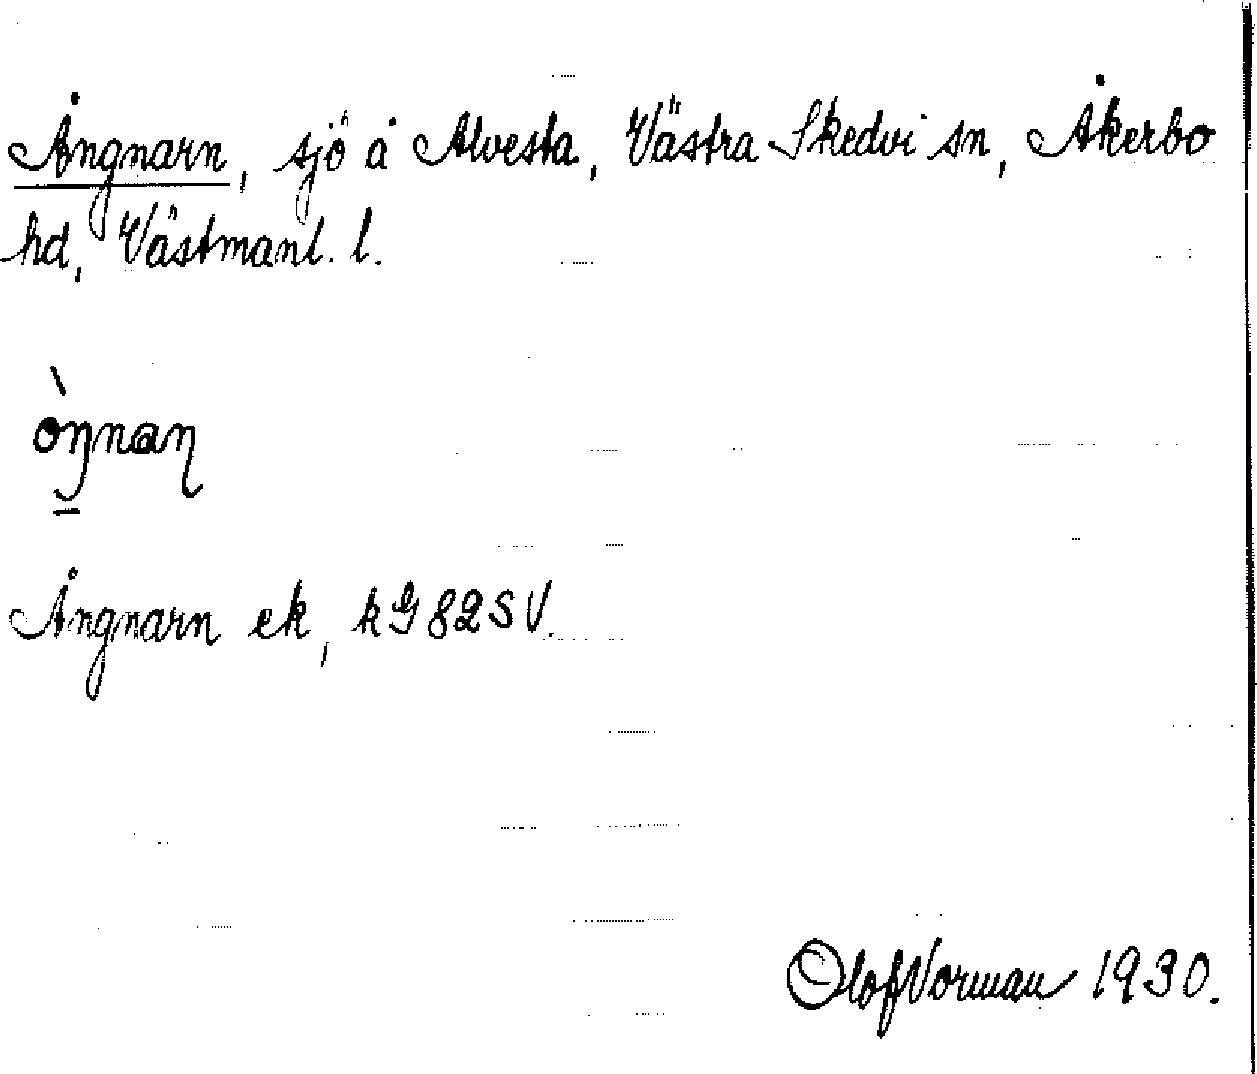 Ångnarn, sjö å Alvesta, Västra Skedvi sn, Åkerbo
hd, Västmanl. l.
ò̱ŋnaɳ
Ångnarn ek, kG 82 SV.
Olof Norman 1930.